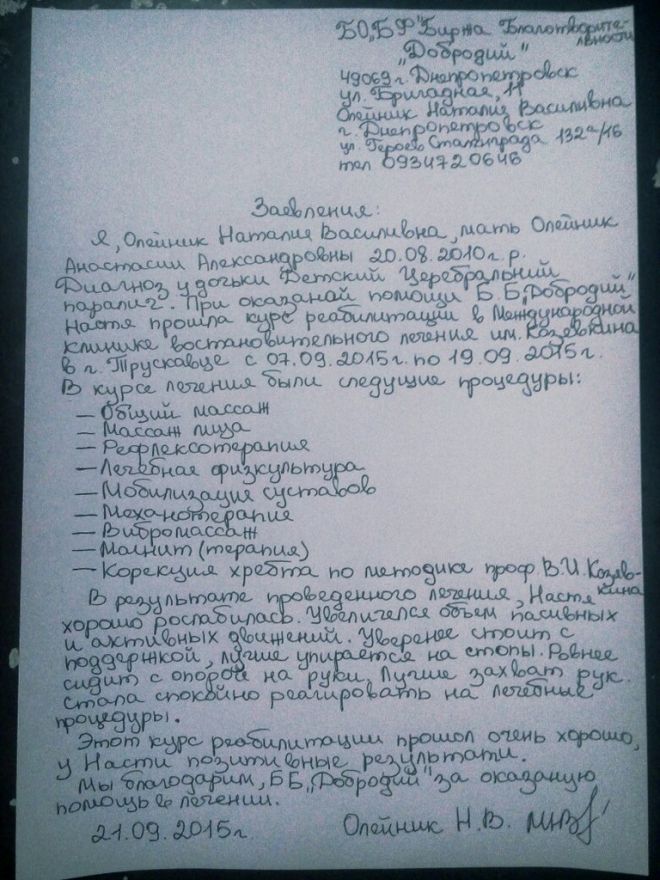 БО„БФ"Биржа Благотворите-
льности
„Добродий"
49069 г. Днепропетровск
ул. Бригадная, 11
Олейник Наталия Василивна
г. Днепропетровск
ул. Героев Сталинграда 132а/16
тел 0934720646
Заевления:
Я, Олейник Наталия Василивна, мать Олейник
Анастасии Александровны 20.08.2010г.р.
Диагноз у дочьки Детский Церебральний
паралич. При оказаной помощи Б.Б„Добродий"
Настя прошла курс реабилитации в Международной
клинике востановительного лечения им. Козявкина
в г. Трускавце с 07.09.2015г. по 19.09.2015г.
В курсе лечения были следущие процедуры:
– Общий массаж
– Массаж лица
– Рефлексотерапия
– Лечебная физкультура
– Мобилизация суставов
– Механотерапия
– Вибромассаж
– Магнит (терапия)
– Корекция хребта по методике проф. В.И. Козяв-
кина
В результате проведенного лечения, Настя
хорошо рослабилась. Увеличелся объем пасивных
и активных движений. Увереное стоит с
поддержкой, лучше упирается на стопы. Ровнее
сидит с опорой на руки. Лучше захват рук.
Стала спокойно реагировать на лечебные
процедуры.
Этот курс реабилитации прошол очень хорошо,
у Насти позитивные результати.
Мы благодарим, ББ„Добродий" за оказаную
помощь в лечении.
21.09.2015г. Олейник Н.В.